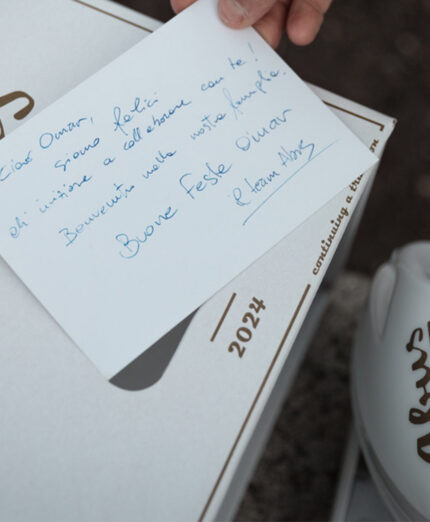 Ciao Omar,
siamo felici
di iniziare a collaborare con te!
Benvenuto nella nostra famiglia.
Buone Feste Omar
il team Abus
2024
continuing a
Abus